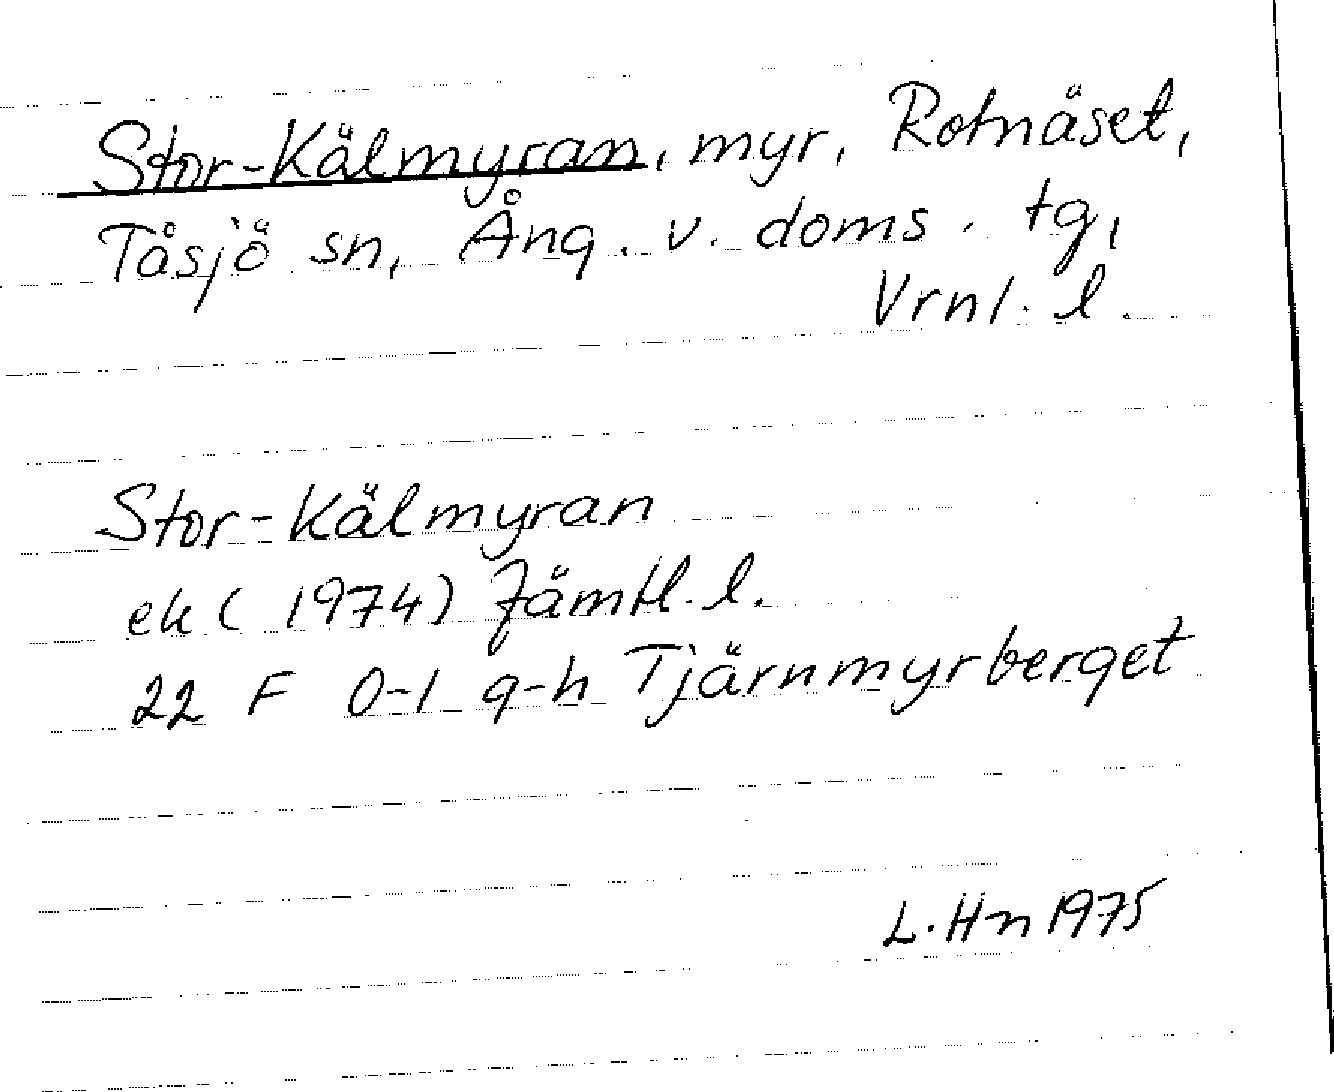 Stor-Kälmyran, myr, Rotnäset,
Tåsjö sn, Ång. v. doms. tg,
Vrnl. l.
Stor-Kälmyran
ek (1974) Jämtl. l.
22 F 0-1 g-h Tjärnmyrberget
L. Hn 1975